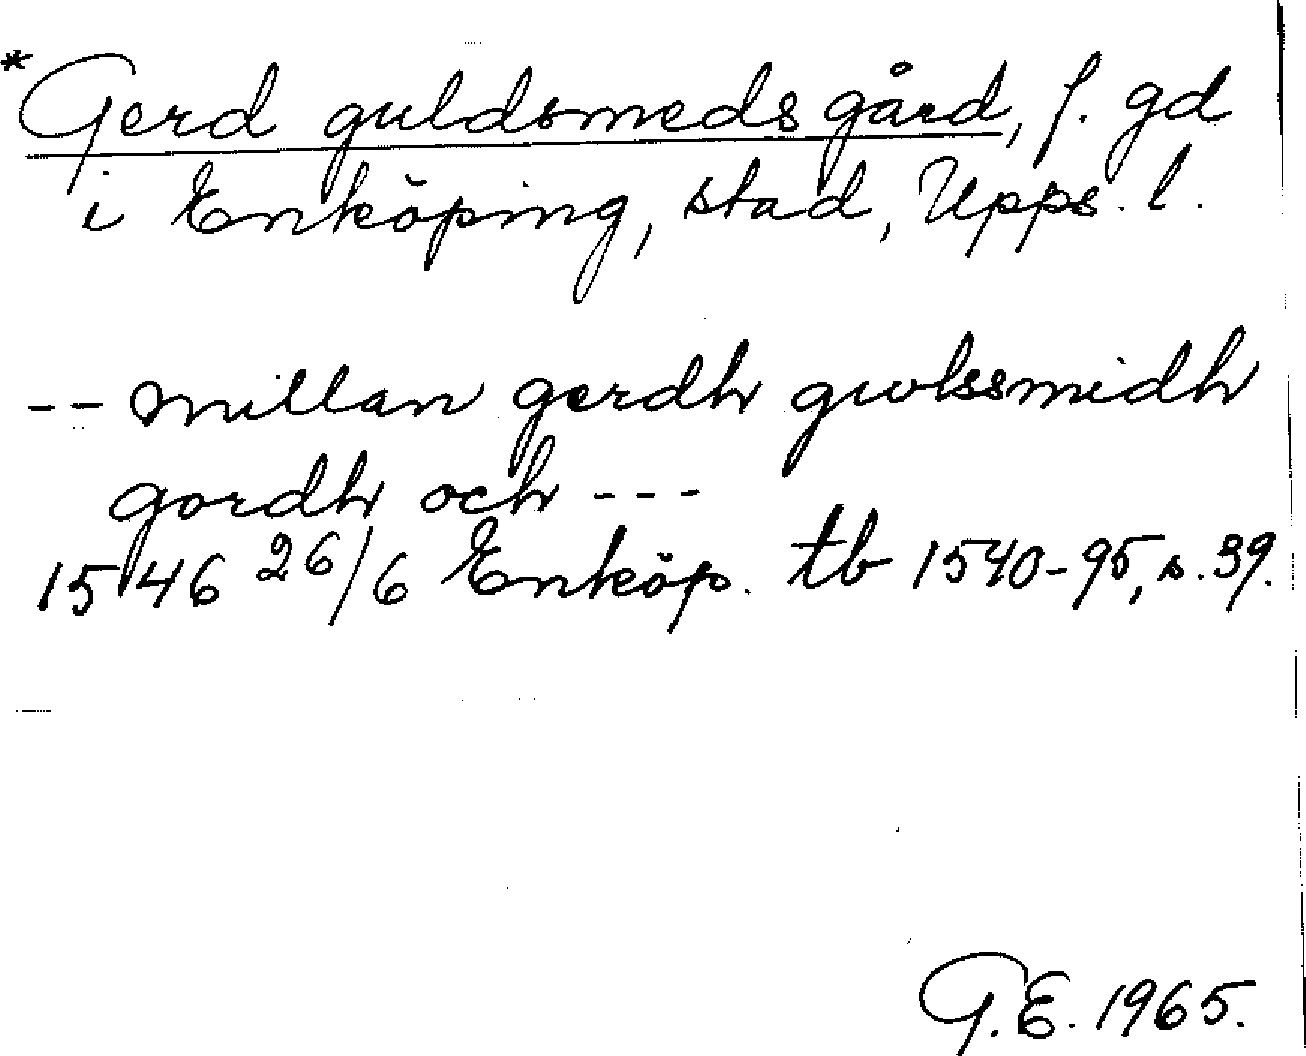 *Gerd guldsmeds gård, f. gd
i Enköping, stad, Upps. l.
-- millan gerdh gwlssmidh
gordh och ---
1546 26/6 Enköp. tb 1540-95, s. 39.
G.E. 1965.